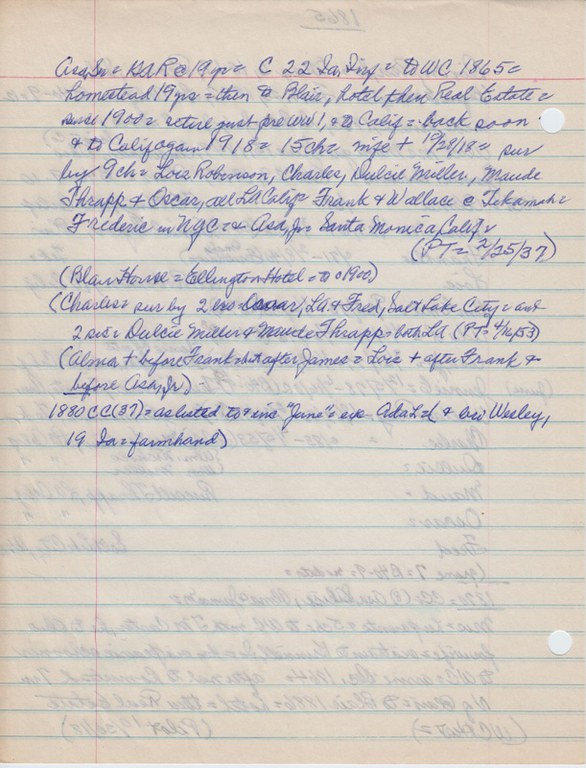 Asa, Sr = GAR @ 19 yr = C 22 Ia, Inf = to WC 1865 =
homestead 19 yrs = then to Blair, hotel then Real Estate =
since 1900 = active just pre WW1, & to Calif = back soon
& to Calif again 1918 = 15 ch = wife + 10/28/18 = sur
by 9 ch = Lois Robinson, Charles, Dulcie Miller, Maude
Thrapp & Oscar, all LA Calif = Frank & Wallace @ Tekamah =
Frederic in NYC = & Asa, Jr = Santa Monica, Calif
(PT = 2/25/37)
(Blair House = Ellington Hotel = to c1900)
(Charles = sur by 2 bro = Oscar, LA & Fred, Salt Lake City = and
2 sis = Dulcie Miller & Maude Thrapp = both LA (PT = 4/16/53)
(Alma + before Frank = but after James = Lois + after Frank &
before Asa, Jr) -
1880 CC (37) = as listed to & inc "Jane" = exc Ada L = ( & bro Wesley,
19 Ia = farmhand)